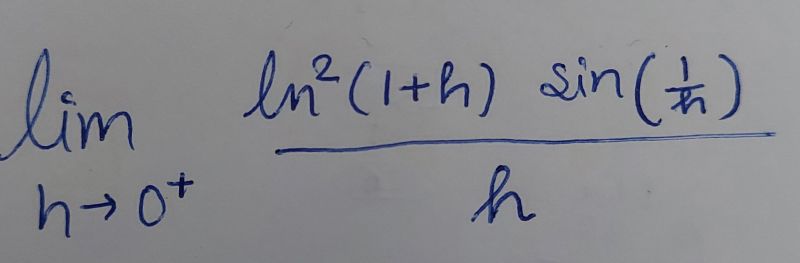 lim h→0⁺ ln²(1+h) sin(1/h) / h